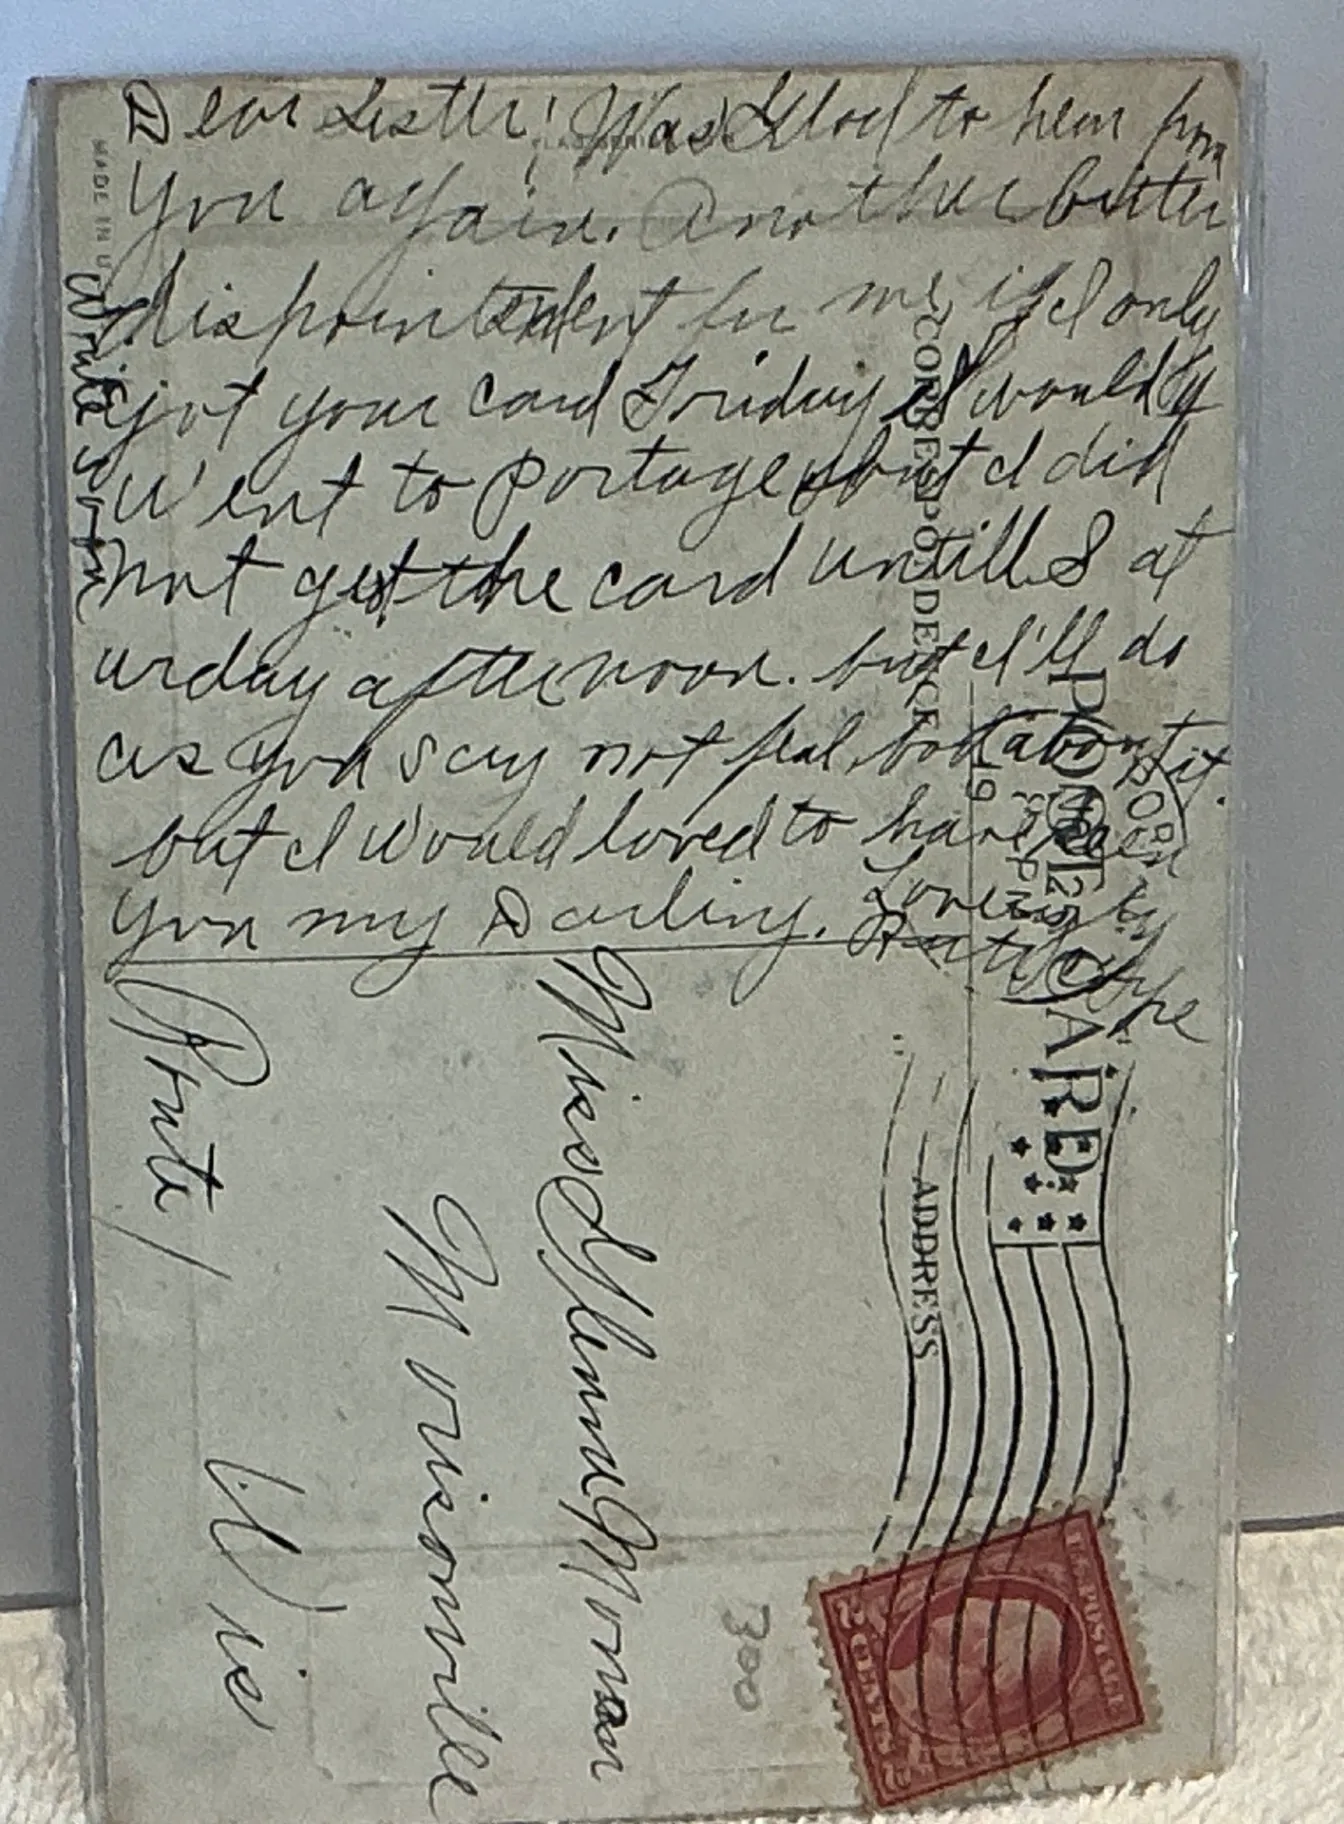 Dear Sister! Was Glad to hear from
you again. Another bitter
dispointment for me, if I only
got your card Friday I would of
went to Portage but I did
not get the card untill Sat
urday afternoon. but I'll do
as you say not feal bad about it.
but I would loved to have seen
you my Darling. Lovingly
Write soon
MADE IN U
CORRESPONDENCE
POST CARD
ADDRESS
19
Miss Glenna Moran
Morrisonville
Wis
Route 1
300
U.S. POSTAGE
2 CENTS 2